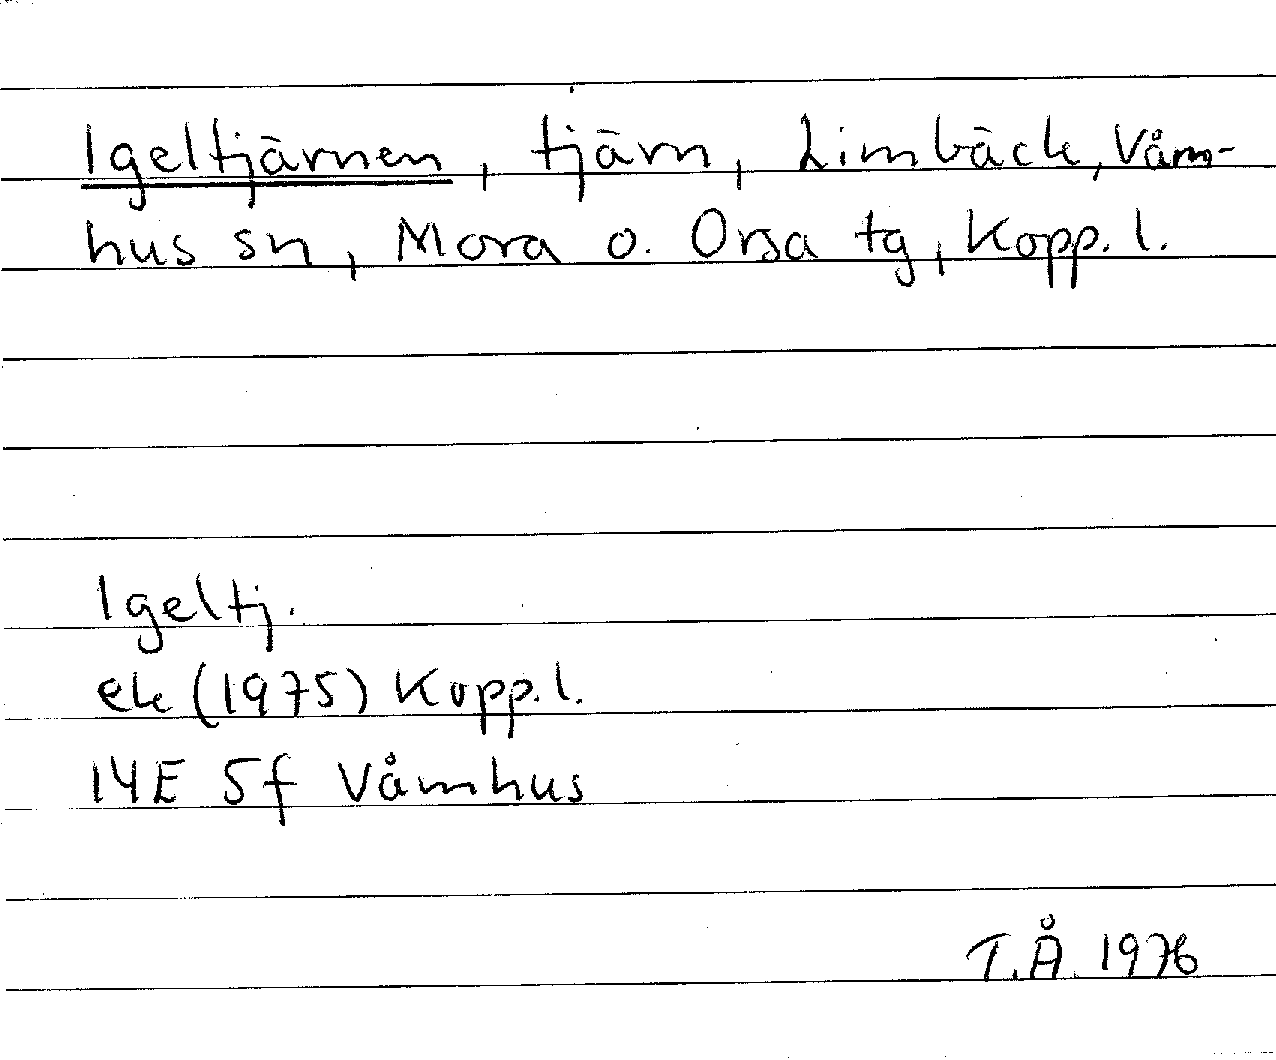 Igeltjärnen, tjärn, Limbäck, Våm-
hus sn, Mora o. Orsa tg, Kopp. l.
Igeltj.
ek (1975) Kopp. l.
14E 5f Våmhus
T.Å. 1976